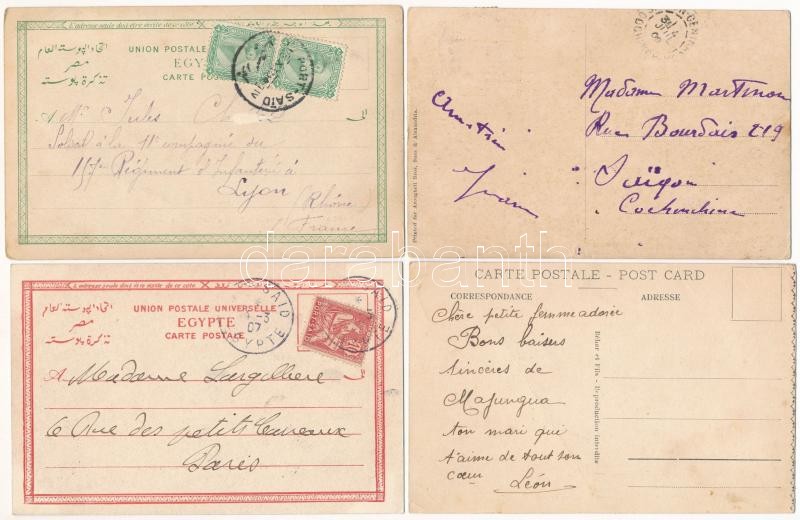 اتحاد البوستة العام
مصر
تذكرة بوستة
UNION POSTALE
CARTE POSTALE
PORT-SAID
A Mr Jules
Soldat à la 11e compagnie du
157e Régiment d'Infanterie à
Lyon
(Rhône)
France
Madame Martinon
Rue Bourdais 219
Saïgon
Cochinchine
Printed for Arougheti Bros, Suez & Alexandria.
L'adresse seule doit être écrite de ce côté
اتحاد البوستة العام
مصر
تذكرة بوستة
UNION POSTALE UNIVERSELLE
EGYPTE
CARTE POSTALE
SAID
07
A Madame Largilliere
6 Rue des petits Carreaux
Paris
CARTE POSTALE - POST CARD
CORRESPONDANCE
ADRESSE
Chère petite femme adorée
Bons baisers
sincères de
Majunqua
ton mari qui
t'aime de tout son
cœur
Léon
Béhar et Fils - Reproduction interdite
darabanth